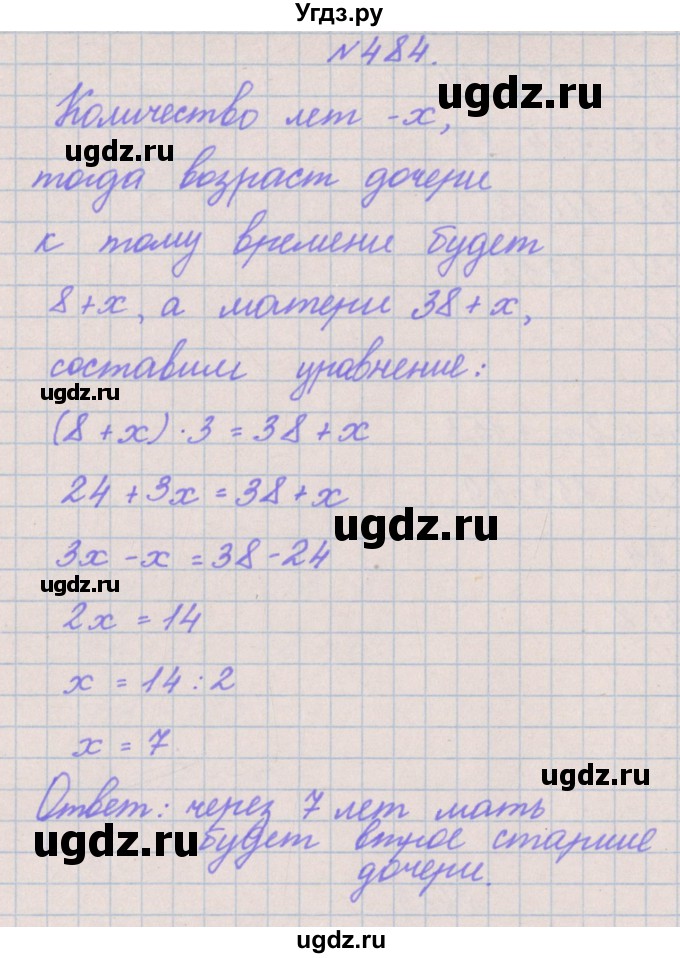 Угдз.ру
№484.
Количество лет - x,
ugdz.ru
ugdz.ru
тогда возраст дочери
к тому времени будет
8+x, а матери 38+x,
составим уравнение:
ugdz.ru
(8+x)·3=38+x
24+3x=38+x
ugdz.ru
3x-x=38-24
ugdz.ru
2x=14
x=14:2
x=7
ugdz.ru
Ответ: через 7 лет мать
ugdz.ru
будет втрое старше
дочери.
ugdz.ru